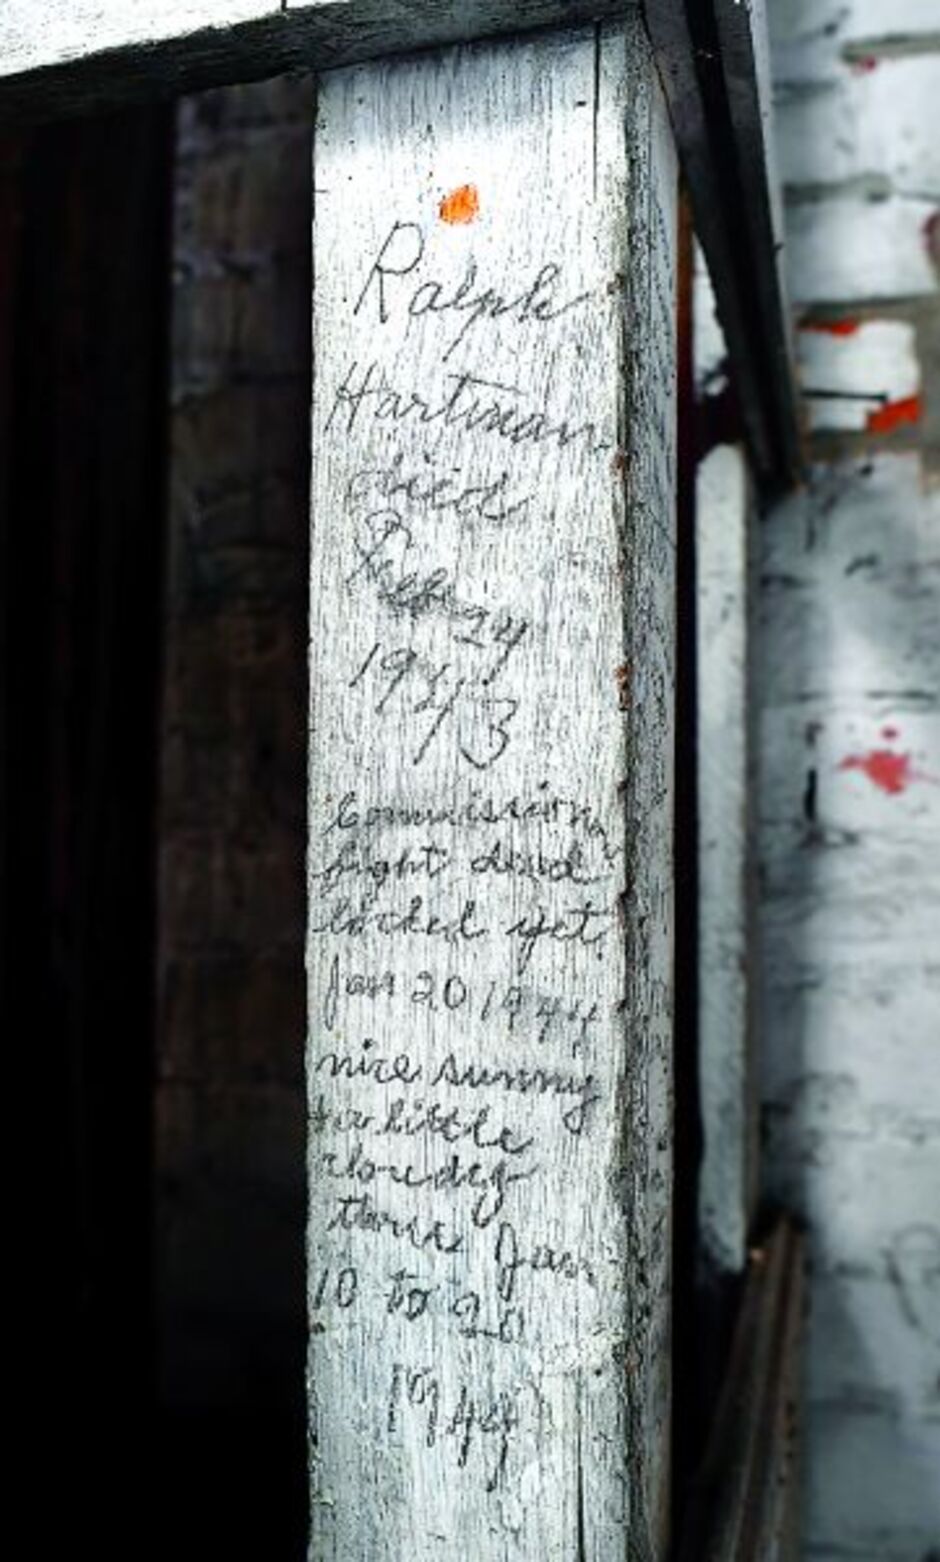 Ralph
Hartman
died
24
1943
Commission
fight dead
locked yet
Jan 20 1944
nice sunny
to little
cloudy
thru Jan
10 to 20
1944